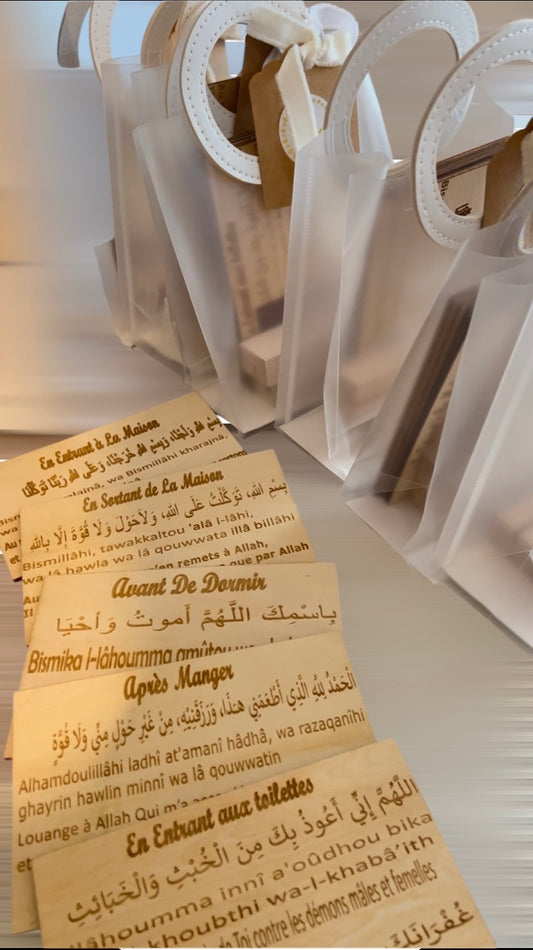 En Entrant à La Maison
بِسْمِ اللهِ وَلَجْنَا، وَبِسْمِ اللهِ خَرَجْنَا، وَعَلَى اللهِ رَبِّنَا تَوَكَّلْنَا
wa Bismillâhi kharajnâ,
En Sortant de La Maison
بِسْمِ اللهِ، تَوَكَّلْتُ عَلَى اللهِ، وَلَاحَوْلَ وَلَا قُوَّةَ إِلَّا بِاللهِ
Bismillâhi, tawakkaltou 'alâ l-lâhi,
wa lâ hawla wa lâ qouwwata illâ billâhi
remets à Allah,
que par Allah
Avant De Dormir
بِاسْمِكَ اللَّهُمَّ أَموتُ وَأَحْيَا
Bismika l-lâhoumma amûtou
Après Manger
الْحَمْدُ لِلَّهِ الَّذِي أَطْعَمَنِي هَـذَا، وَرَزَقَنِيْهِ، مِنْ غَيْرِ حَوْلٍ مِنِّي وَلَا قُوَّةٍ
Alhamdoulillâhi ladhî at'amanî hâdhâ, wa razaqanîhi
ghayrin hawlin minnî wa lâ qouwwatin
Louange à Allah Qui m'a
et
En Entrant aux toilettes
اللَّهُمَّ إِنِّي أَعُوذُ بِكَ مِنَ الْخُبْثِ وَالْخَبَائِثِ
llâhoumma innî a'oûdhou bika
khoubthi wa-l-khabâ'ith
de Toi contre les démons mâles et femelles
غُفْرَانَكَ